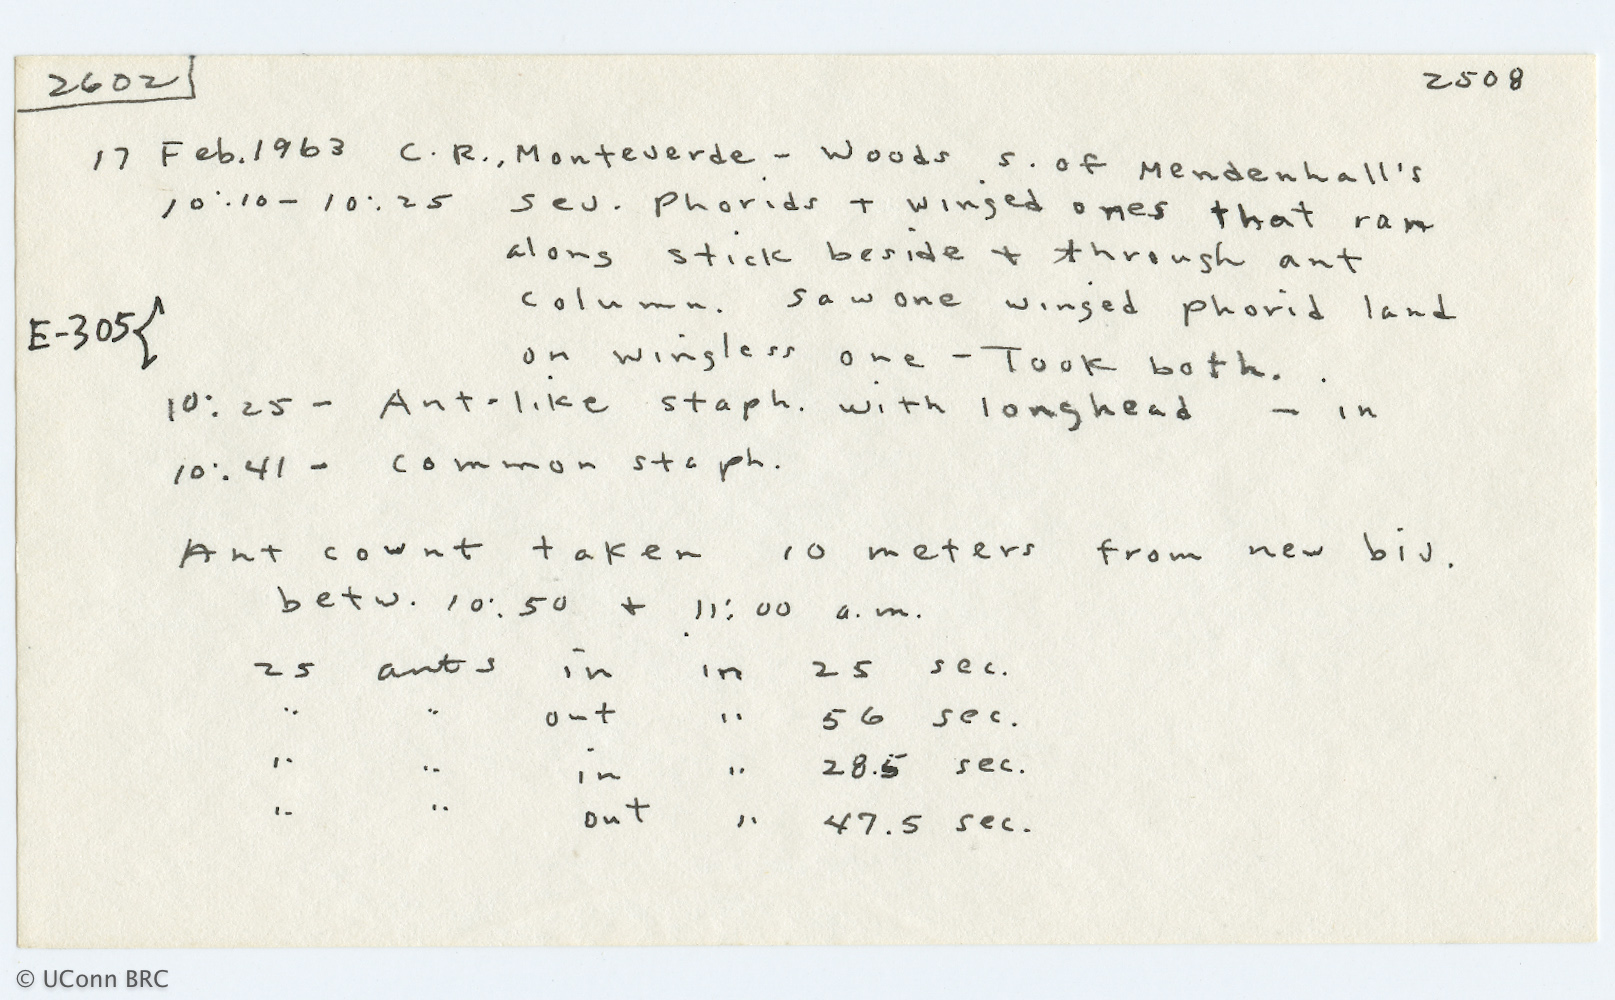 2602 2508
17 Feb. 1963 C.R., Monteverde - Woods s. of Mendenhall's
10:10 - 10:25 sev. phorids + winged ones that ran
along stick beside + through ant
column. Saw one winged phorid land
E-305{
on wingless one - Took both.
10:25 - Ant-like staph. with longhead - in
10:41 - common staph.
Ant count taken 10 meters from new biv.
betw. 10:50 + 11:00 a.m.
25 ants in in 25 sec.
" " out " 56 sec.
" " in " 28.5 sec.
" " out " 47.5 sec.
© UConn BRC